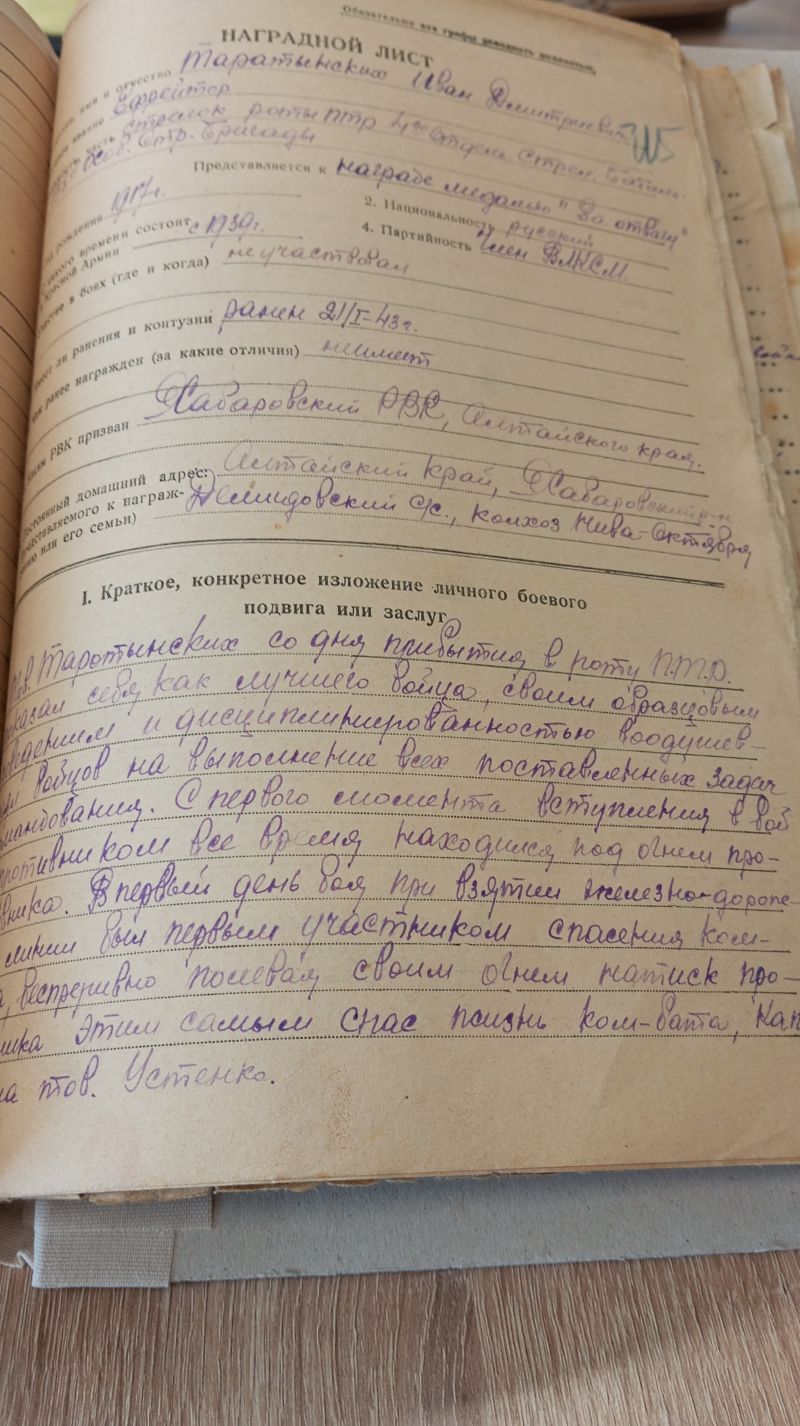 Обязательно все графы заполнять полностью
НАГРАДНОЙ ЛИСТ
имя и отчество Таратынских Иван Дмитриевич
звание Ефрейтор
часть стрелок роты ПТР отдель. Стрел. Баталь.
Особ. Стр. Бригады
Представляется к награде медалью "За отвагу"
рождения 1917г. 2. Национальность русский
какого времени состоит с 1939г. 4. Партийность Член ВЛКСМ.
Красной Армии
участие в боях (где и когда) не участвовал
Имеет ли ранения и контузии ранен 21/I-43г.
Чем ранее награжден (за какие отличия) не имеет
Каким РВК призван Хабаровский РВК, Алтайского края.
Постоянный домашний адрес: Алтайский край, Хабаровский р-н
представляемого к награж-
ению или его семьи) Демидовский с/с., колхоз Нива-Октября
I. Краткое, конкретное изложение личного боевого
подвига или заслуг
Таротынских со дня прибытия в роту П.Т.О.
показал себя как лучшего бойца, своим образцовым
ведением и дисциплинированностью воодушев-
бойцов на выполнение всех поставленных задач
мандования. С первого момента вступления в бой
противником все время находился под огнем про-
вника. В первый день боя при взятии железно-дороже-
линии был первым участником спасения ком-
а, беспрерывно полевая своим огнем натиск про-
ника этим самым спас жизнь ком-бата, кап
на тов. Устенко.